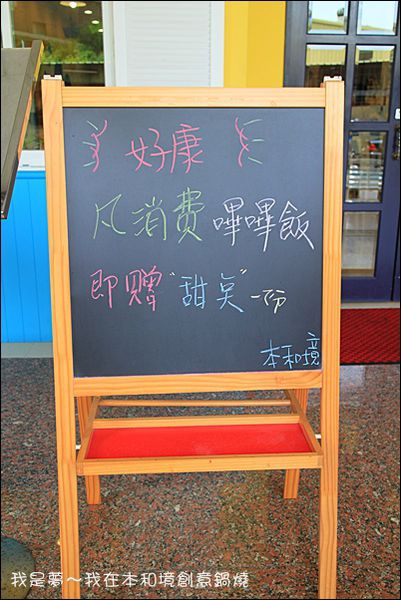 好康
凡消費嗶嗶飯
即贈"甜点"一份
本和境
我是夢～我在本和境創意鍋燒